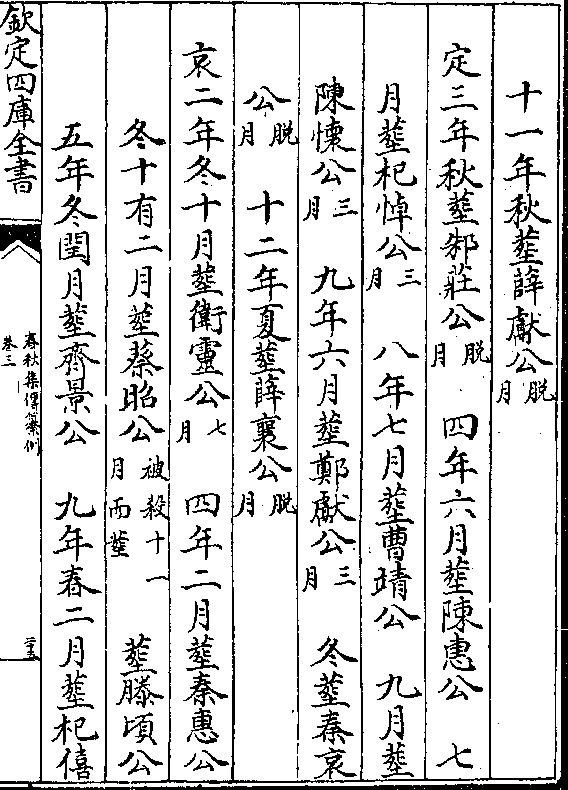 十一年秋塟薛獻公脱月
定三年秋塟邾莊公脱月　四年六月塟陳惠公　七
月塟杞悼公三月　八年七月塟曹靖公　九月塟
陳懷公三月　九年六月塟鄭獻公三月　冬塟秦哀
公脱月　十二年夏塟薛襄公脱月
哀二年冬十月塟衛靈公七月　四年二月塟秦惠公
冬十有二月塟蔡昭公被殺十一月而塟　塟滕頃公
五年冬閏月塟齊景公　九年春二月塟杞僖
欽定四庫全書
春秋集傳纂例
卷三